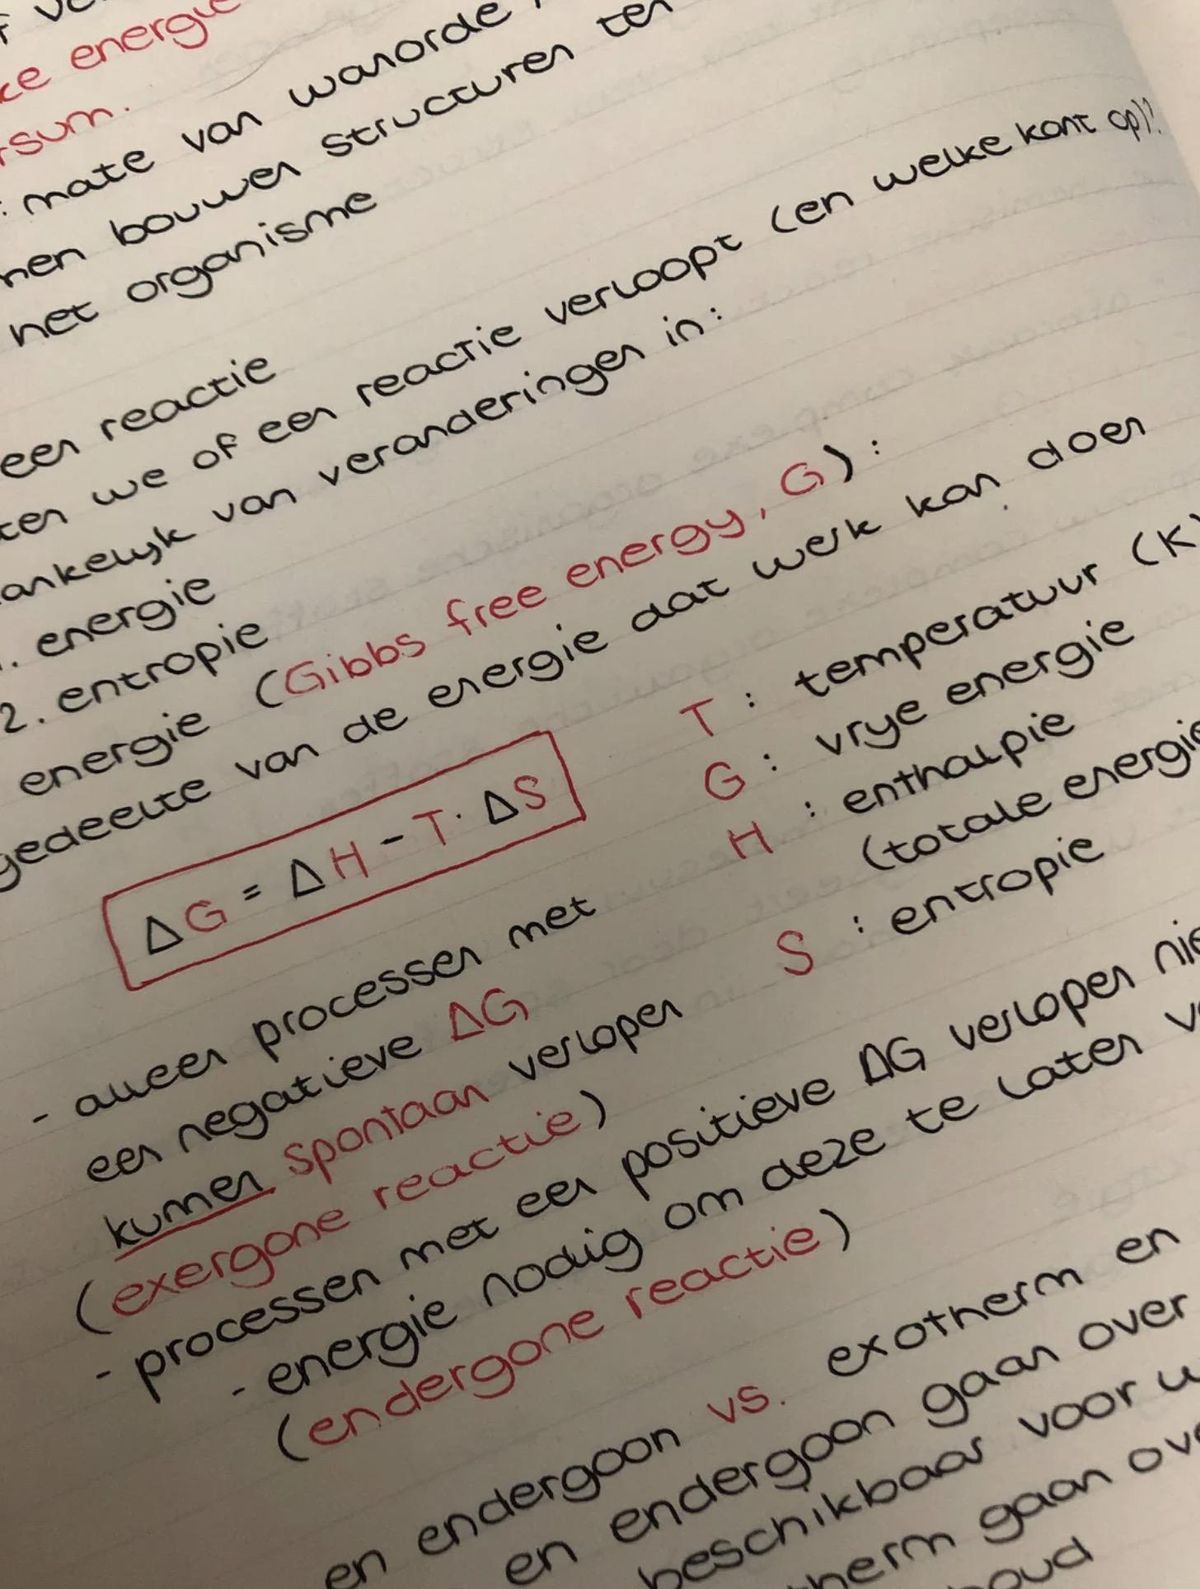 ke energie
rsum.
: mate van wanorde
men bouwen structuren
het organisme
een reactie
ten we of een reactie verloopt (en welke kant op)?
ankelyk van veranderingen in:
1. energie
2. entropie
energie (Gibbs free energy, G):
gedeelte van de energie dat werk kan doen
ΔG = ΔH - T · ΔS
T : temperatuur (K)
G : vrye energie
H : enthalpie
(totale energie
S : entropie
- alleen processen met
een negatieve ΔG
kunnen spontaan verlopen
(exergone reactie)
- processen met een positieve ΔG verlopen nie
- energie nodig om deze te laten v
(endergone reactie)
en endergoon vs. exotherm en
en endergoon gaan over
beschikbaar voor w
therm gaan ov
houd